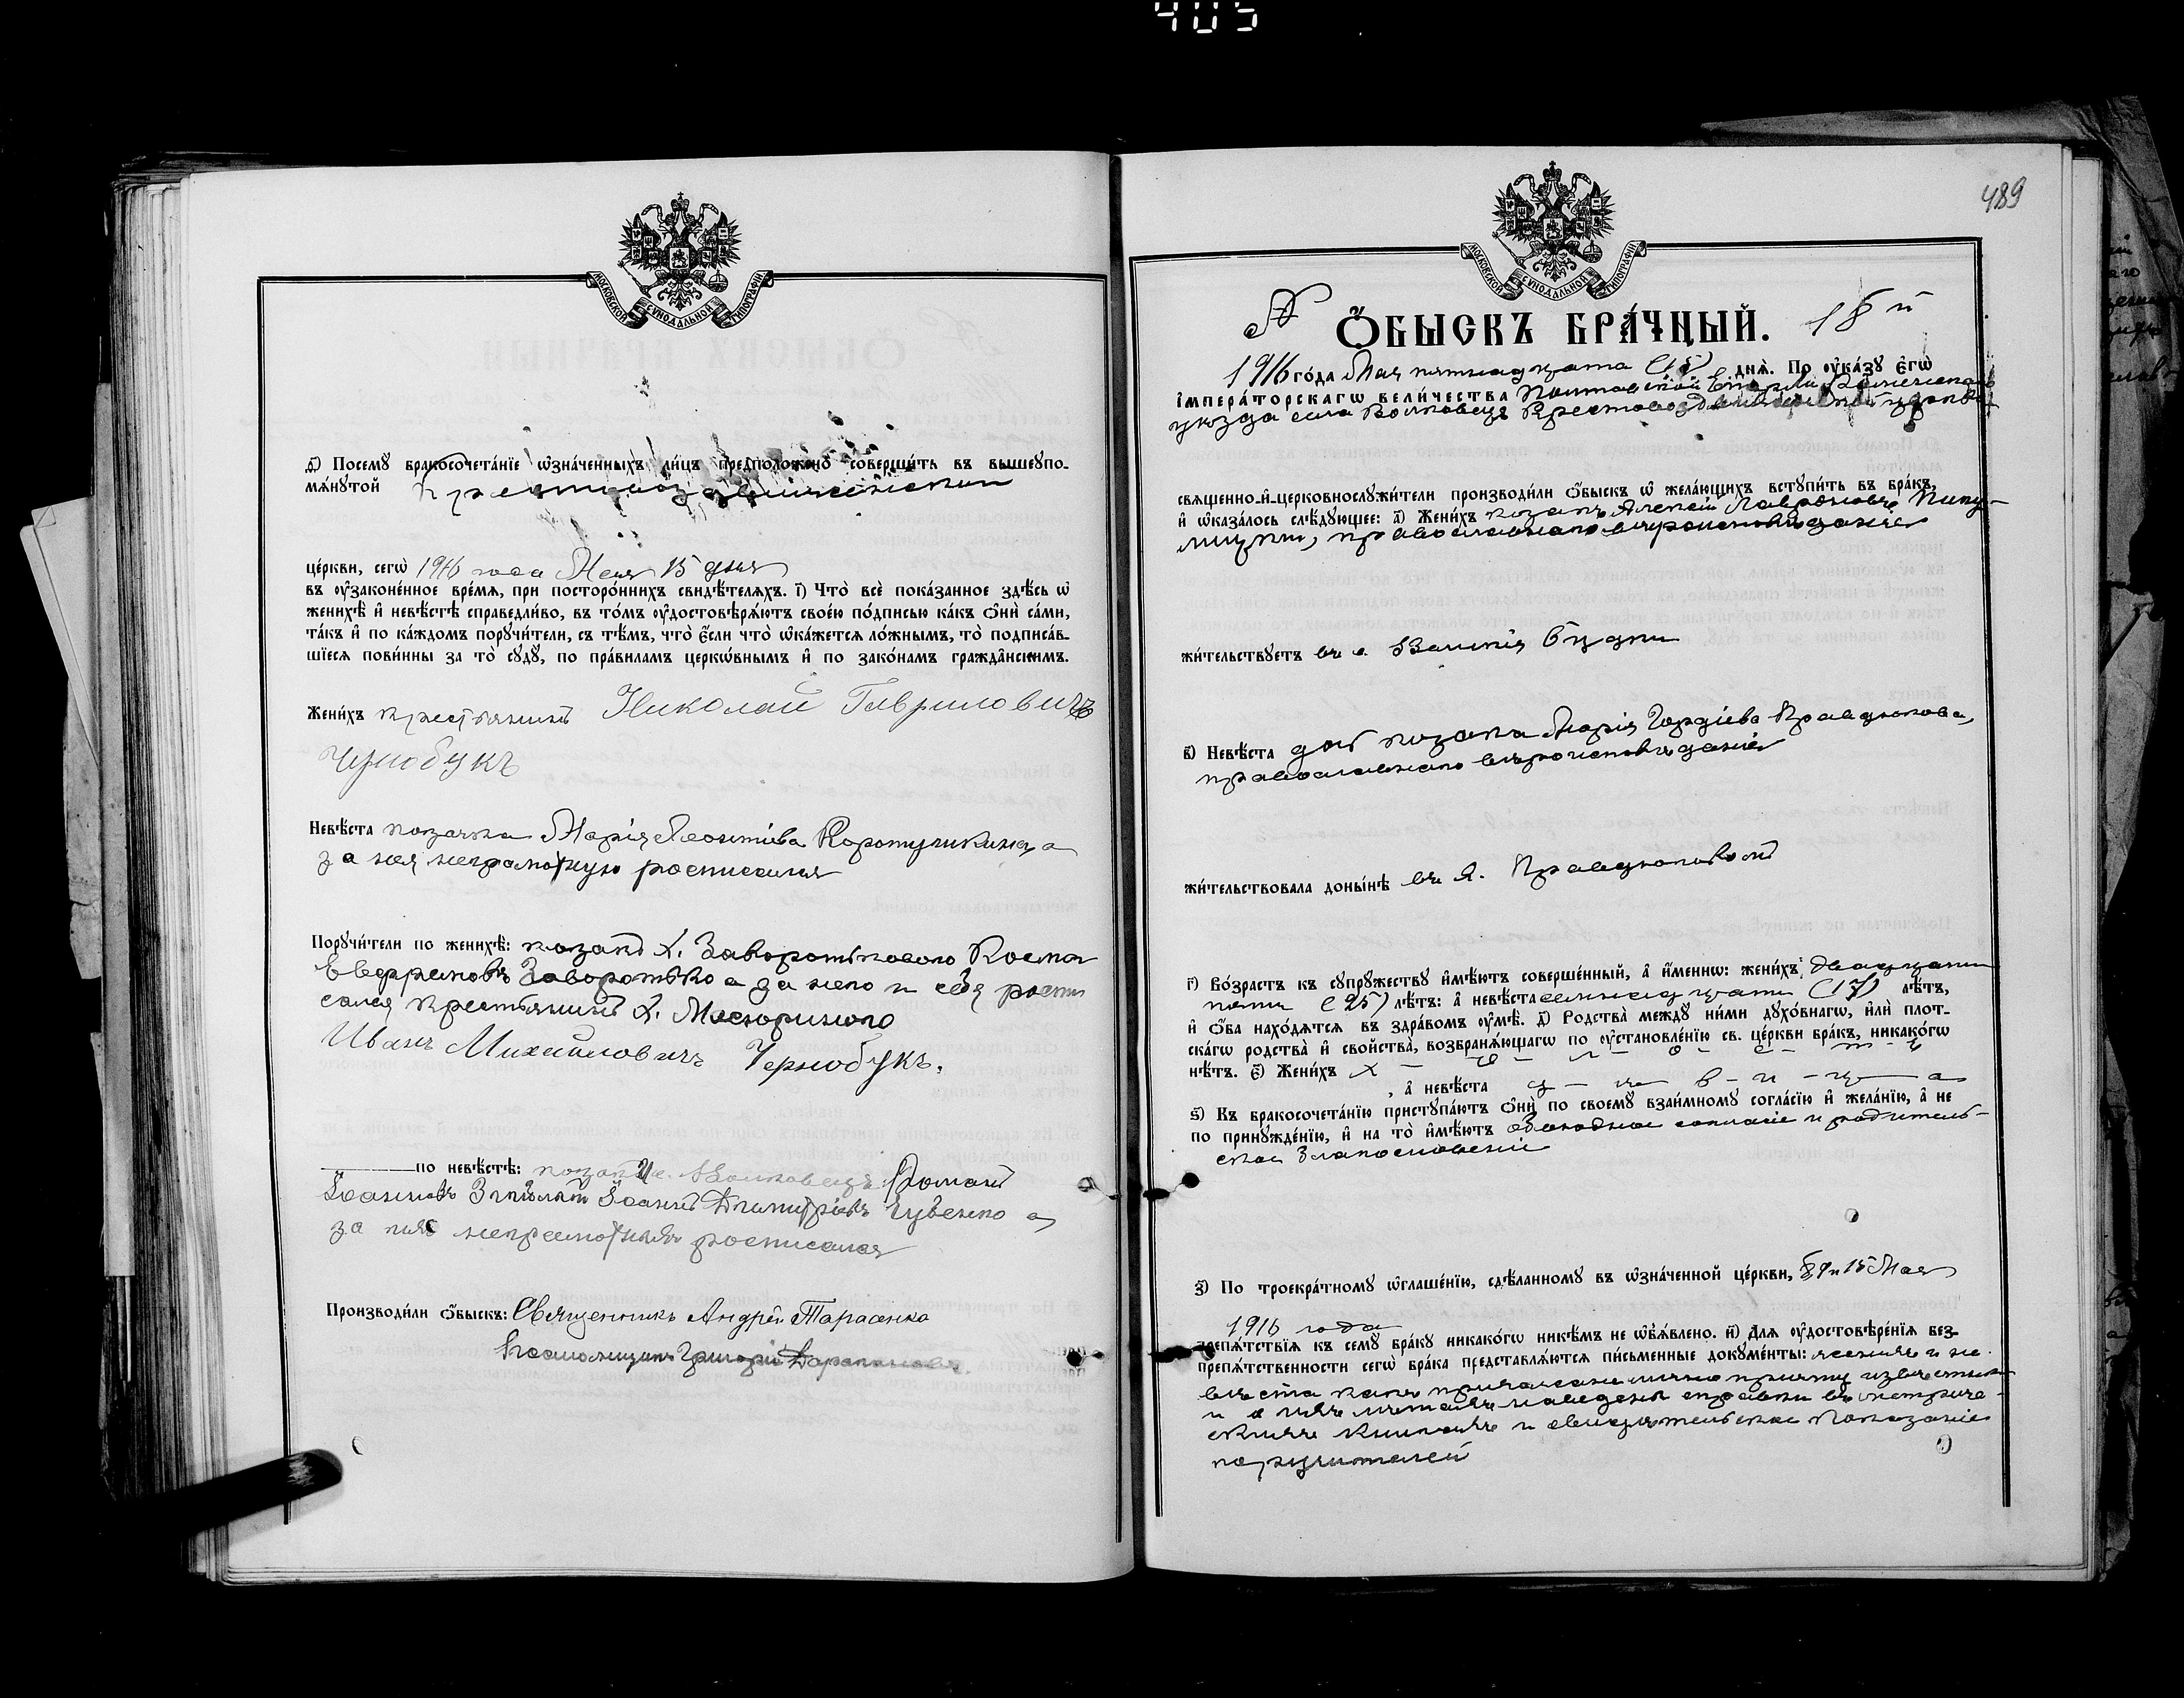 405
МОСКОВСКОЙ СѴНОДАЛЬНОЙ ТИПОГРАФІИ
д҃) Посемꙋ̀ бракосочета́нїе ѡ҆зна́ченныхъ ли́цъ предположено̀ соверши́ть въ вышеꙋпо-
мѧ́нꙋтой Крестовоздвиженской
це́ркви, сегѡ̀ 1916 года Мая 15 дня
въ ᲂу҆законе́нное вре́мѧ, при посторо́ннихъ свидѣ́телѧхъ. і҃) Что̀ всѐ пока́занное здѣ́сь ѡ҆
женихѣ̀ и҆ невѣ́стѣ справедли́во, въ то́мъ ᲂу҆достовѣрѧ́ютъ свое́ю по́дписью ка́къ ѻ҆нѝ са́ми,
та́къ и҆ по ка́ждомъ порꙋчи́тели, съ тѣ́мъ, что̀ є҆́сли что̀ ѡ҆ка́жетсѧ ло́жнымъ, то̀ подписа́в-
шїесѧ пови́нны за то̀ сꙋдꙋ̀, по пра́виламъ церко́внымъ и҆ по зако́намъ гражда̂нскимъ.
Жени́хъ крестьянинъ Николай Гавриловичъ
Чернобукъ
Невѣ́ста козачка Марія Леонтіева
за нея неграмотную росписался
Порꙋчи́тели по женихѣ̀: козакъ х. Заворотьковаго Косма
Евфремовъ Заворотько а за него и себя роспи
сался крестьянинъ х.
Иванъ Михайловичъ Чернобукъ.
по невѣ́стѣ: козаки с. Волковецъ Романъ
Іоанновъ Іоаннъ Димитріевъ Гувенко а
за нихъ неграмотныхъ росписался
Производи́ли ѻ҆́быскъ: Священникъ Андрей Тарасенко
Псаломщикъ Григорій
489
МОСКОВСКОЙ СѴНОДАЛЬНОЙ ТИПОГРАФІИ
Ѻ҆́БЫСКЪ БРА́ЧНЫЙ. 18й
1916 го́да Мая пятнадцатаго (15) днѧ̀. По ᲂу҆ка́зꙋ є҆гѡ̀
і҆мпера́торскагѡ вели́чества Полтавской Епархіи Роменскаго
уезда села Волковецъ Крестовоздвиженской церкви
свѧщенно-и҆-церковнослꙋжи́тели производи́ли ѻ҆́быскъ ѡ҆ жела́ющихъ встꙋпи́ть въ бра́къ,
и҆ ѡ҆каза́лось слѣ́дꙋющее: а҃) Жени́хъ козакъ Алексій Лавровичъ
православнаго вѣроисповѣданія
жи́тельствꙋетъ въ с. Великія Будки
в҃) Невѣ́ста дочь козака Марія Гордіева Правдюкова,
православнаго вѣроисповѣданія
жи́тельствовала доны́нѣ въ х. Правдюковомъ
г҃) Во́зрастъ къ сꙋпрꙋ́жествꙋ и҆мѣ́ютъ соверше́нный, а҆ и҆́менно: жени́хъ двадцати
пяти (25) лѣ́тъ: а҆ невѣ́ста семнадцати (17) лѣ́тъ,
и҆ ѻ҆́ба нахо́дѧтсѧ въ здра́вомъ ᲂу҆мѣ̀. д҃) Родства̀ междꙋ̀ ни́ми дꙋхо́внагѡ, и҆лѝ плот-
ска́гѡ родства̀ и҆ сво́йства, возбранѧ́ющагѡ по ᲂу҆становле́нїю св. це́ркви бра́къ, никако́гѡ
нѣ́тъ. є҃) Жени́хъ х – о – л – о – с – т – ъ
, а҆ невѣ́ста д – ѣ – в – и – ц – а
ѕ҃) Къ бракосочета́нїю пристꙋпа́ютъ ѻ҆нѝ по своемꙋ̀ взаи́мномꙋ согла́сїю и҆ жела́нїю, а҆ не
по принꙋжде́нїю, и҆ на то̀ и҆мѣ́ютъ обоюдное согласіе и родитель-
ское благословеніе
з҃) По троекра́тномꙋ ѡ҆глаше́нїю, сдѣ́ланномꙋ въ ѡ҆зна́ченной це́ркви, 8, 9 и 15 Мая
1916 года
препѧ́тствїѧ къ семꙋ̀ бра́кꙋ никако́гѡ никѣ́мъ не ѡ҆б̾ѧ́влено. и҃) Длѧ̀ ᲂу҆достовѣре́нїѧ без-
препѧ́тственности сегѡ̀ бра́ка представлѧ́ютсѧ пи́сьменные докꙋме́нты: женихъ и не
вѣста какъ прихожане лично причту известны
и о ихъ летахъ наведены справки въ метриче-
скихъ книгахъ и свидѣтельское показаніе
поручителей